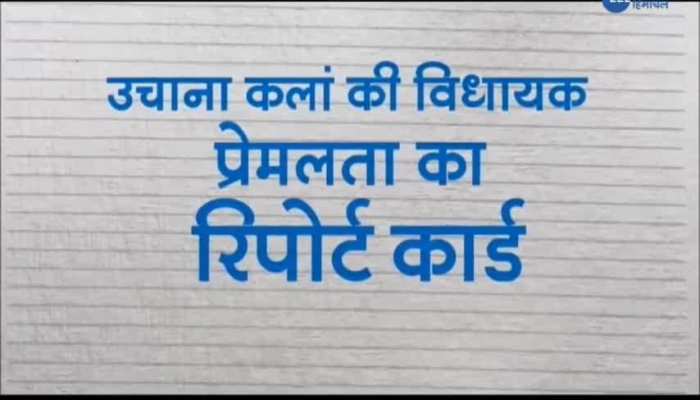 हिमाचल
उचाना कलां की विधायक
प्रेमलता का
रिपोर्ट कार्ड